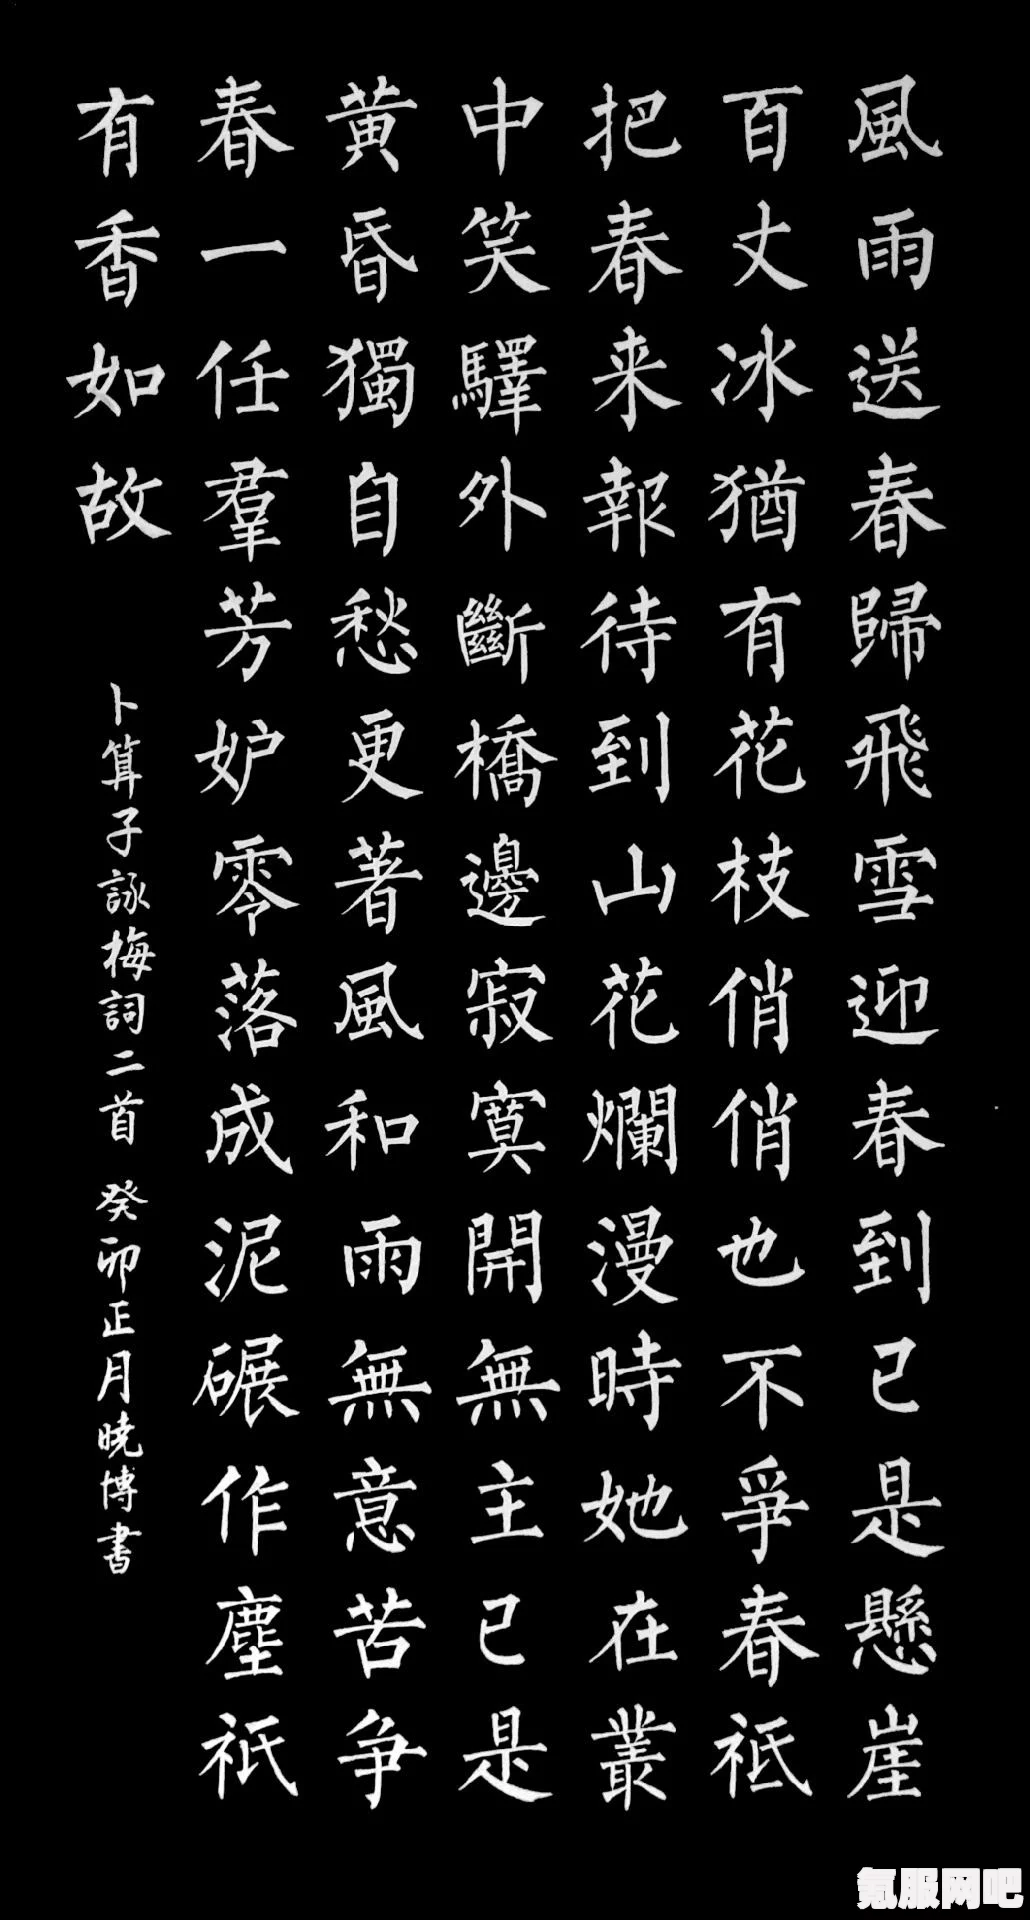 風雨送春歸飛雪迎春到已是懸崖
百丈冰猶有花枝俏俏也不爭春祗
把春来報待到山花爛漫時她在叢
中笑驛外斷橋邊寂寞開無主已是
黄昏獨自愁更著風和雨無意苦争
春一任羣芳妒零落成泥碾作塵祇
有香如故
卜算子詠梅詞二首 癸卯正月曉博書
氪服网吧